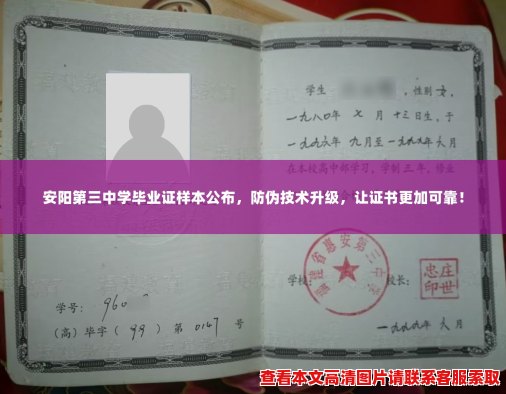 学生　　　，性别 女，
一九八〇年 七 月 十三日生，于
一九九六年 九月至一九九九年 六月
在本校高中部学习，学制三年，修业
安阳第三中学毕业证样本公布，防伪技术升级，让证书更加可靠！
福建省惠安第三中学
学校：
校长：
庄世忠印
学号： 960
（高）毕字（ 99 ）第 0147 号
一九九九年 六 月
查看本文高清图片请联系客服索取